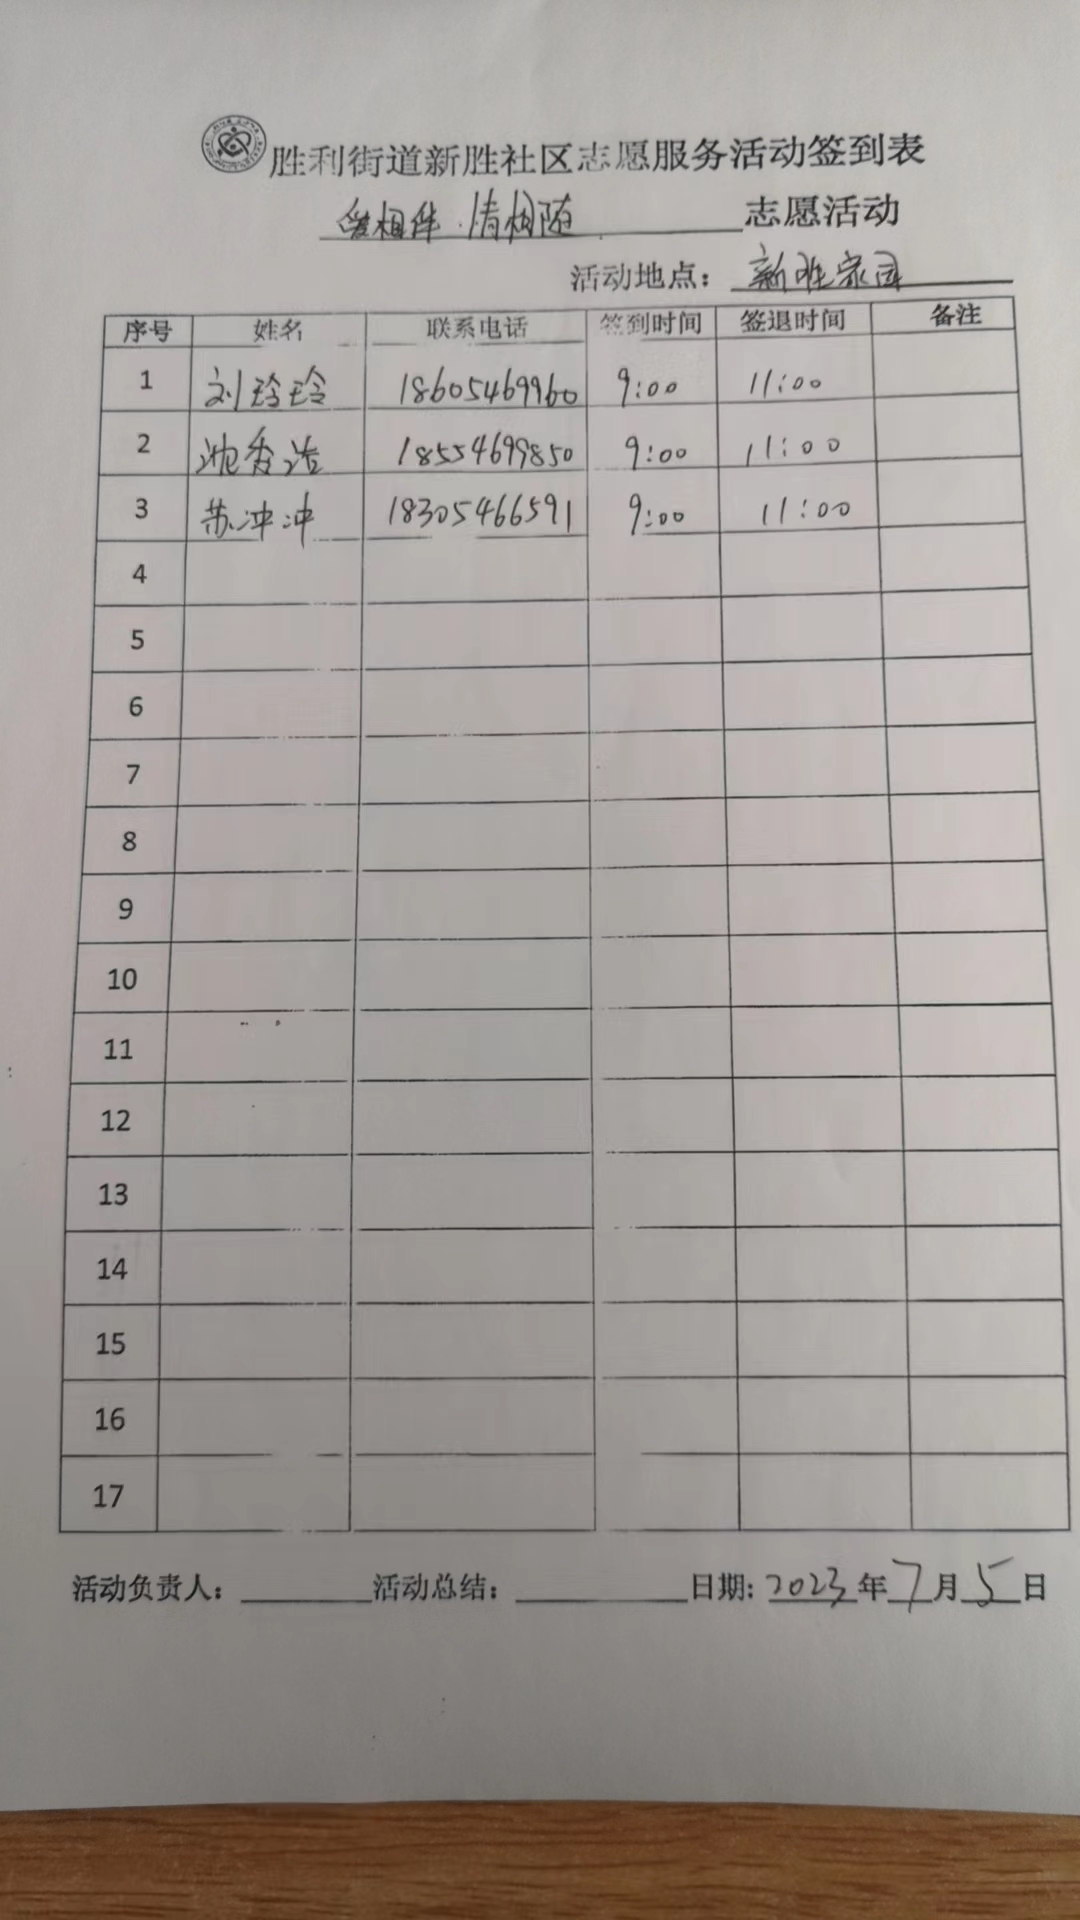 胜利街道新胜社区志愿服务活动签到表
爱相伴·情相随 志愿活动
活动地点：新胜家园
序号 姓名 联系电话 签到时间 签退时间 备注
1 刘玲玲 18605469960 9:00 11:00
2 沈秀洁 18554699850 9:00 11:00
3 苏冲冲 18305466591 9:00 11:00
4
5
6
7
8
9
10
11
12
13
14
15
16
17
活动负责人：______活动总结：________日期：2023年7月5日